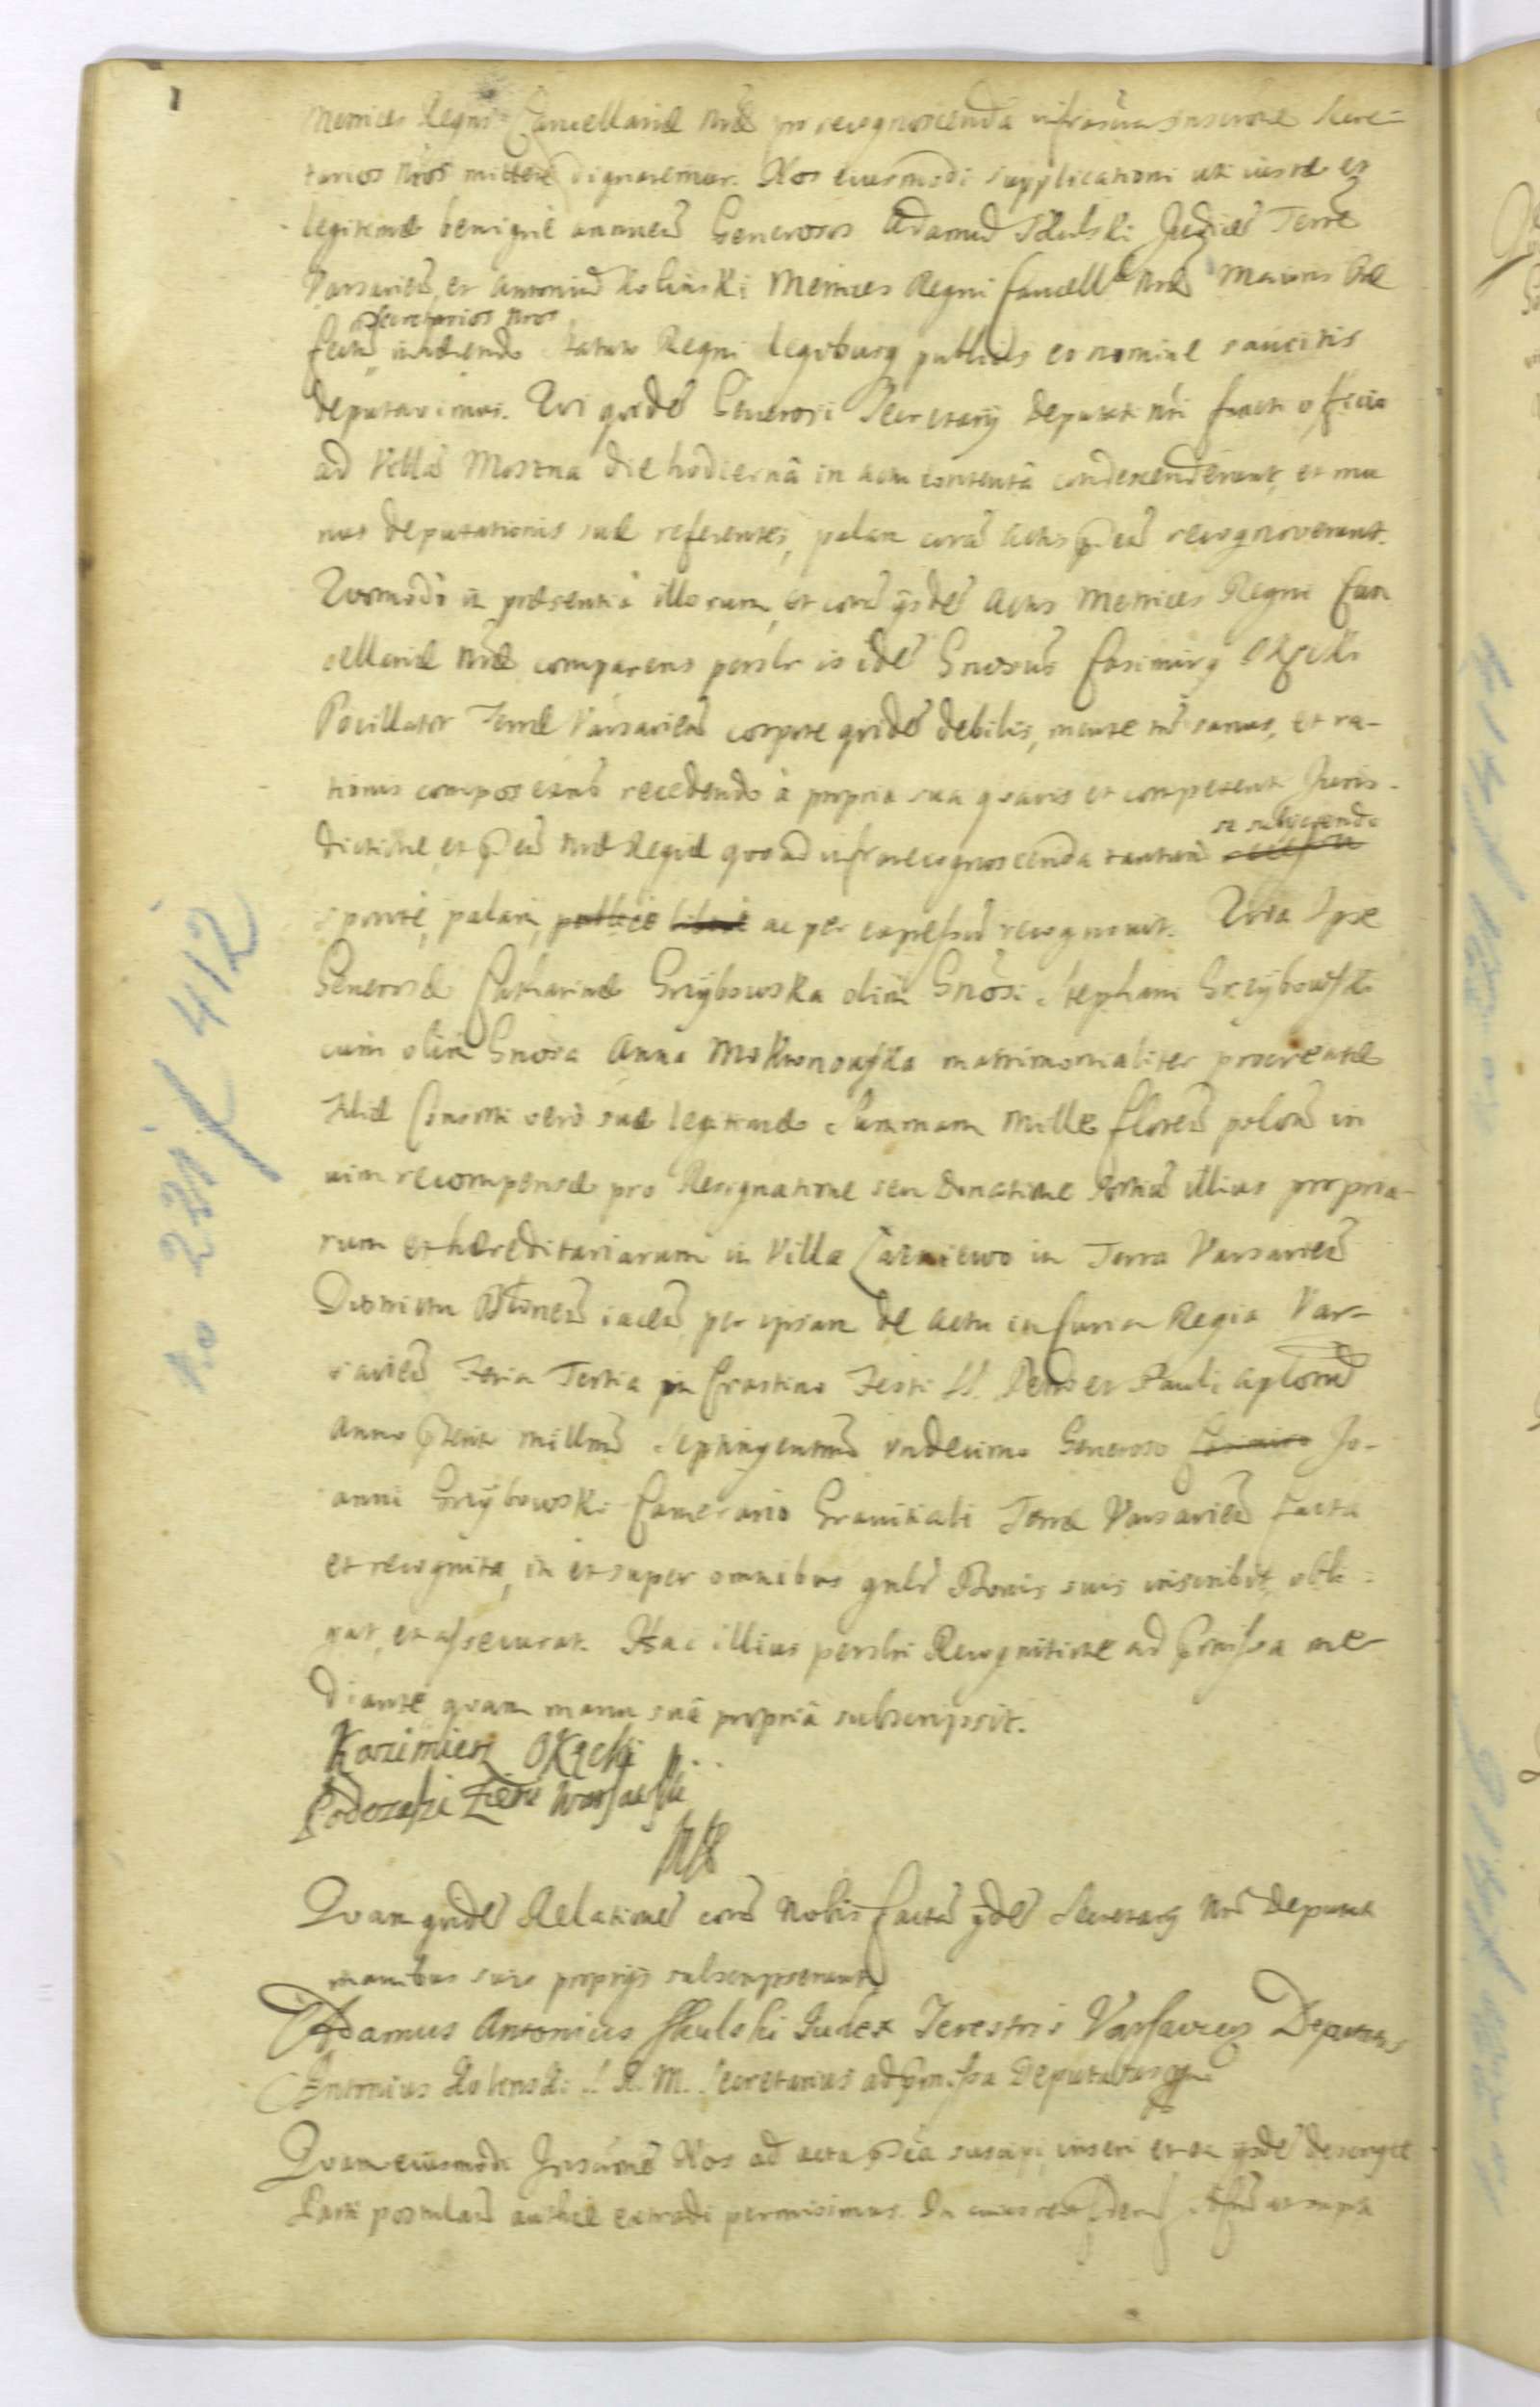 1
Metrices Regni Cancellariæ Nræ pro recognoscenda infrascr inscrone Secre=
tarios Nros mittere dignaremur. Nos eiusmodi supplicationi uti iustæ et
legitimæ benignè annuen Generosos Adamu Skulski Judice Terræ
Varsavien, et Antoniu Rolinski Metrices Regni Cancell Nræ Maioris Præ
secretarios Nros
fectu, inhærendo statuto Regni legibusq publicis eo nomine sancitis
deputavimus. Qui quide Generosi Secretarij deputati Nri functi officio
ad Villa Mostna die hodiernâ in actu contentâ condescenderunt, et mu
nus deputationis suæ referentes, palam corâ actis pntibus recognoverunt.
Quomodo in præsentia illorum, et corâ ijsde Actis Metrices Regni Can
cellariæ Nræ comparens persolr is ide Gnrosus Casimirg Okęcki
Pocillator Terræ Varsavien corpore quide debilis, mente tn sanus, et ra-
tionis compos existens recedendo à propria sua quavis et competenti Juris-
dictione et pnti Næ Regiæ quo ad infrarecognoscenda tantum
se subijciendo
spontè, palam, publicè liberè ac per expressu recognovit. Quia Ipse
Generosæ Catharinæ Grzÿbowska olim Gnrosi Stephani Grzÿbowski
cum olim Gnrosa Anna Mokronowska matrimonialiter procreatæ
filiæ Consorti verò suæ legitimæ Summam Mille floren polon in
vim recompensæ pro Resignatione seu Donatione Sortiu illius propria-
rum et hæreditariarum in Villa Czerniewo in Terra Varsavien
Districtu Błonen iacen per ipsam de Actu in Curia Regia Var-
savien Feria Tertia in Crastino Festi SS. Petri et Pauli Aplorum
Anno præterito Millmo Septingentmo Undecimo Generoso Casimiro Jo-
anni Grzÿbowski Camerario Granitiali Terræ Varsavien facta
et recognita, in et super omnibus gnlr Bonis suis inscribit, obli=
gat, et assecurat. Hac illius persolri Recognitione ad præmissa me-
diante quam manu suâ propriâ subscripsit.
Kazimierz Okęcki
Podczaszi Ziemi Warszawski
Quam quide Relatione corâ Nobis factâ ijde Secretarij Nri Deputati
manibus suis proprijs subscripserunt
Adamus Antonius Skulski Judex Terestris Varsavien Deputatus
Antonius Rolinski S. R. M. Secretarius ad præmissa Deputatus
Quam eiusmodi Inscrione Nos ad acta pntia suscipi, inseri et ex ijsde descriptæ
Parti postulan authce extradi permisimus. In cuius rei fidem Actu ut supra
no 231/412